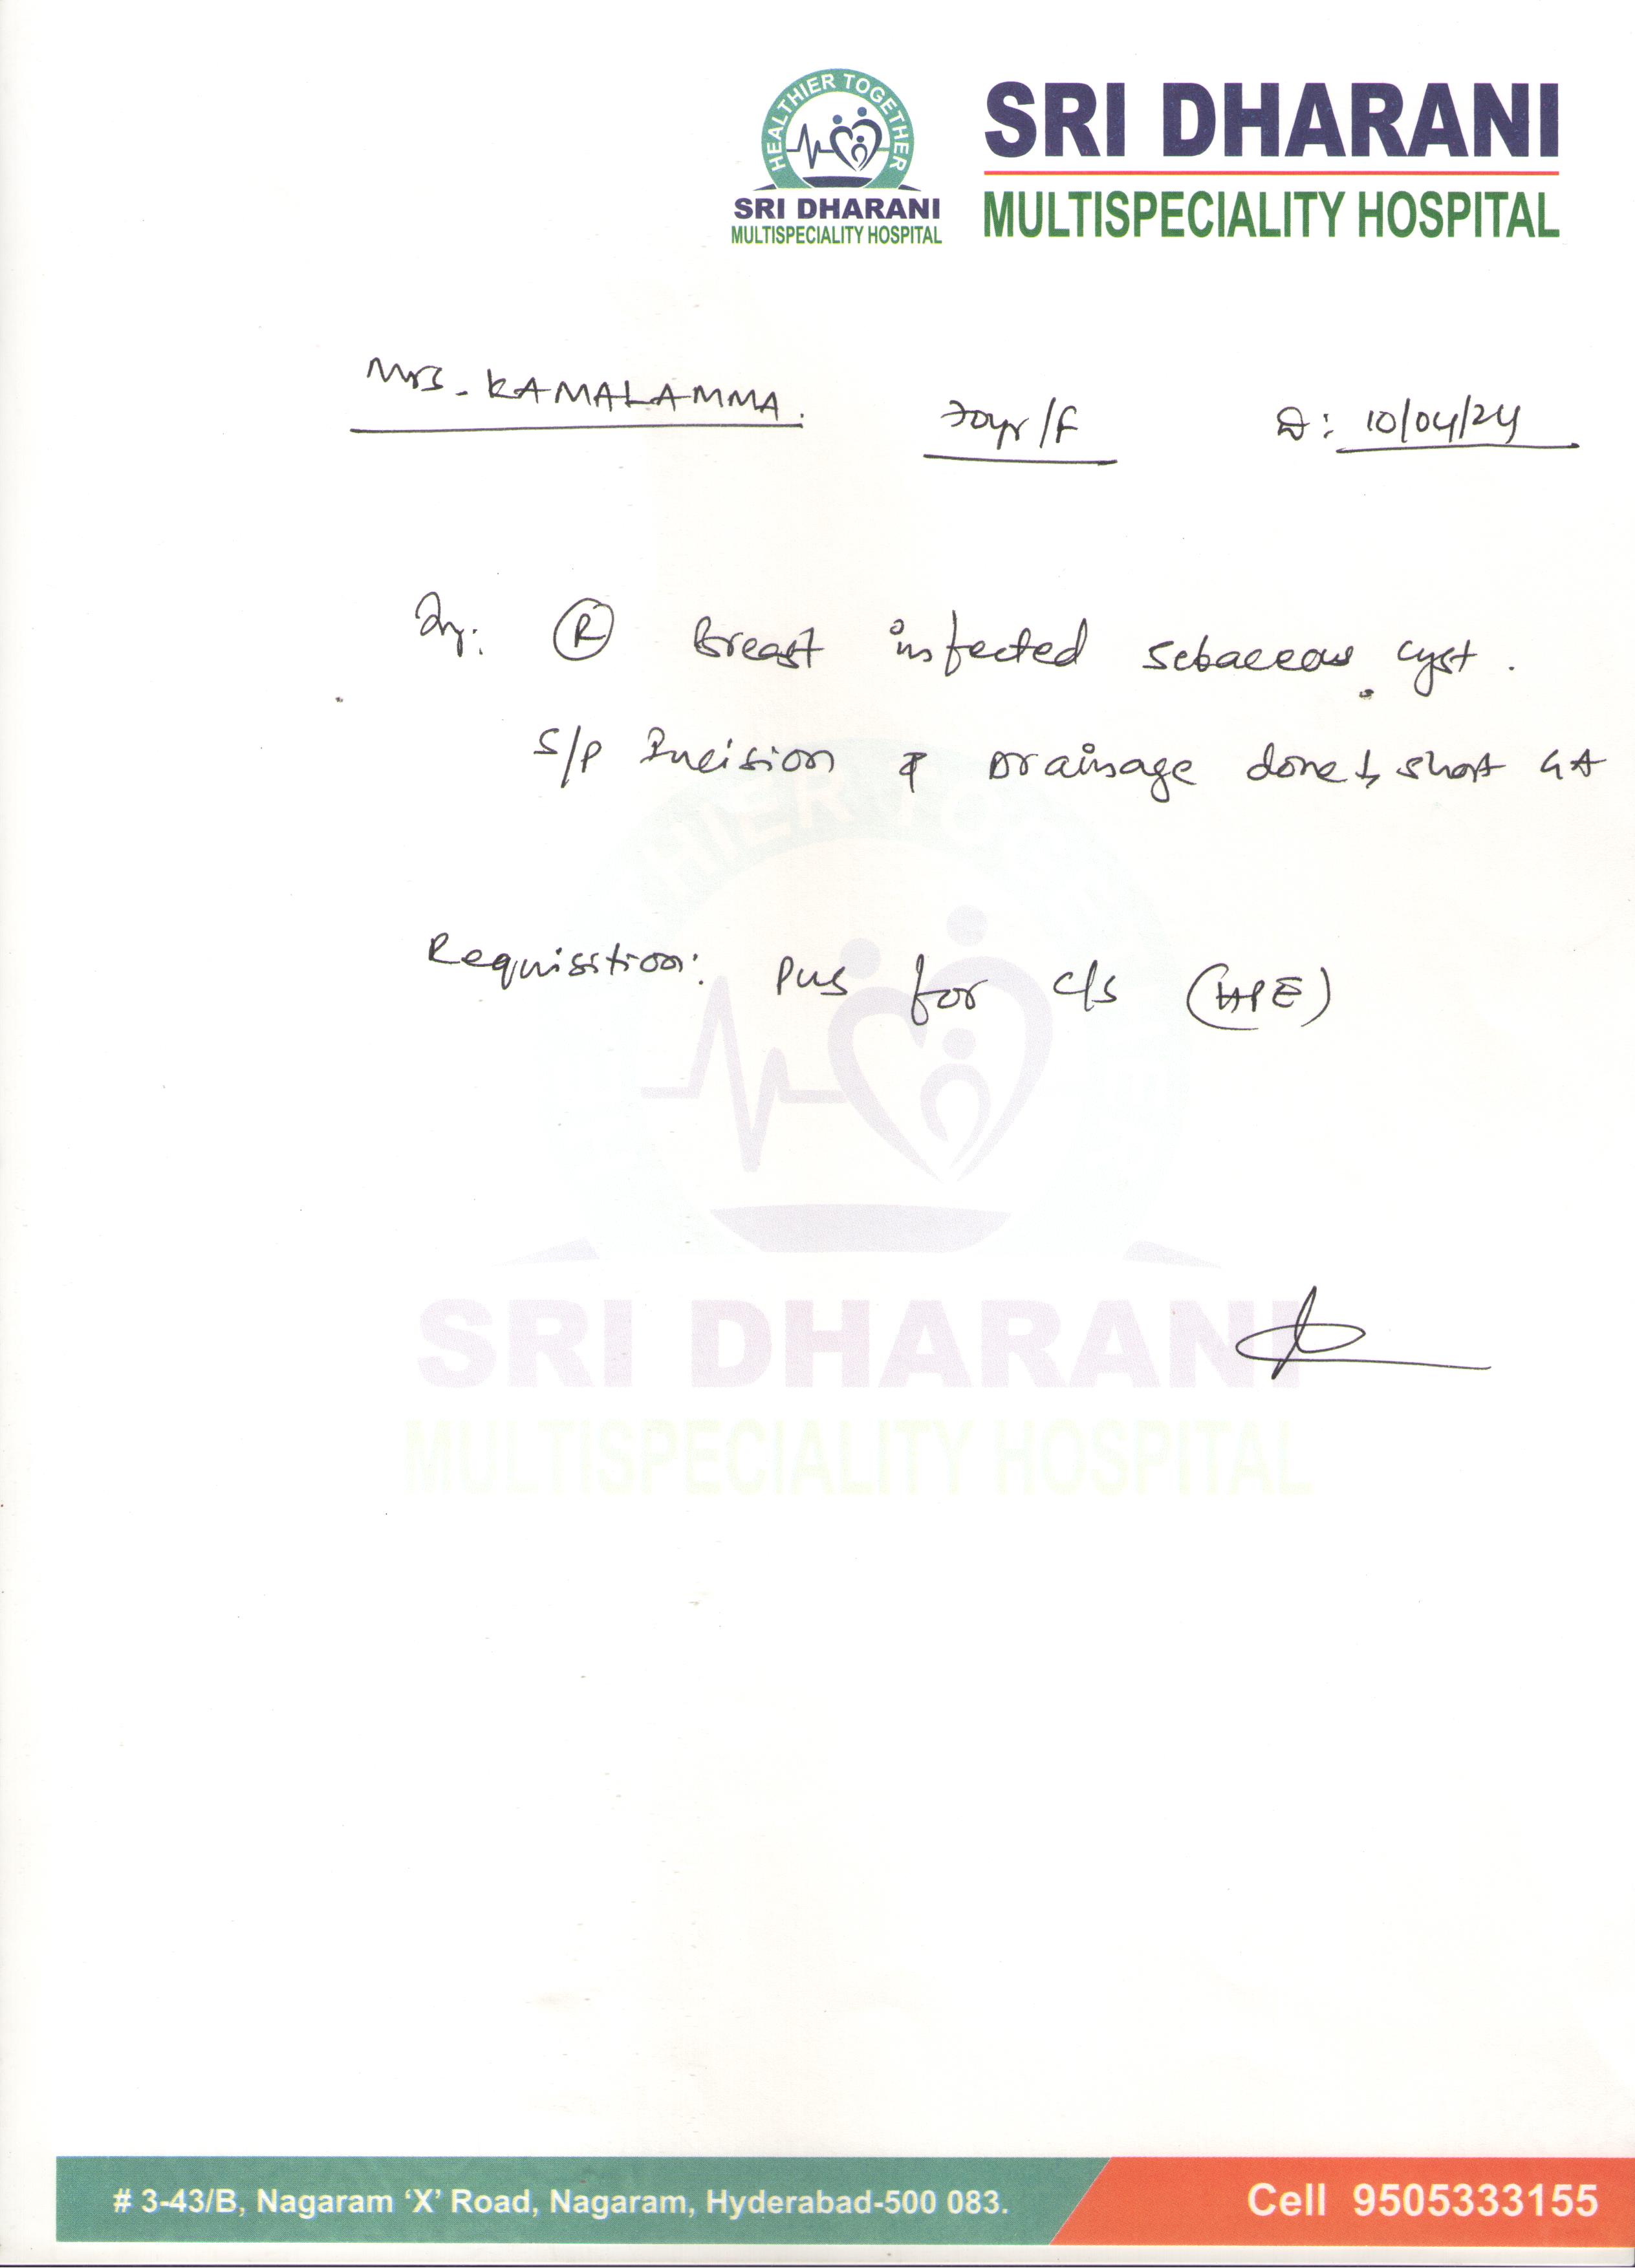 HEALTHIER TOGETHER
SRI DHARANI
MULTISPECIALITY HOSPITAL
SRI DHARANI
MULTISPECIALITY HOSPITAL
Mrs. KAMALAMMA. 70yr/F D: 10/04/24
R Breast infected sebaceous cyst.
S/P Incision & Drainage done short GA
Requisition: Pus for c/s (HPE)
HIER TO
SRI DHARANI
MULTISPECIALITY HOSPITAL
# 3-43/B, Nagaram ‘X’ Road, Nagaram, Hyderabad-500 083. Cell 9505333155